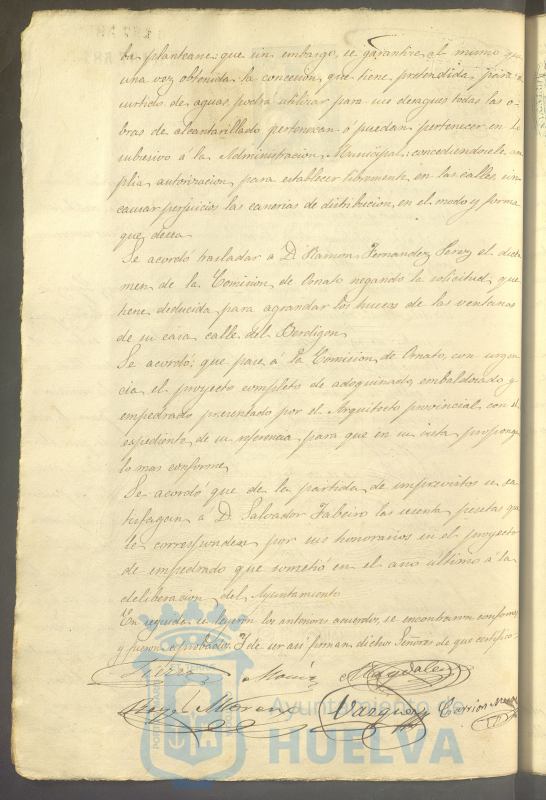 ba planteane; que sin embargo, se garantice al mismo que
una vez obtenida la concesion, que tiene pretendida para
surtido de aguas podrá utilizar para sus desagues todas las o-
bras de alcantarillado pertenezcan ó puedan pertenecer en lo
subcesivo á la Administracion Municipal, concediendosele am
plia autorizacion, para establecer libremente en las calles, sin
causar perjuicios las cañerias de distribucion, en el modo y forma
que desea
Se acordó trasladar á D. Ramon Fernandez Perez el dicta
men de la Comision de Ornato negando la solicitud, que
tiene deducida para agrandar los huecos de las ventanas
de su casa calle del Berdigon
Se acordó; que pase á la Comision de Ornato, con urgen
cia, el proyecto completo de adoquinado, embaldosado y
empedrado presentado por el Arquitecto provincial, con el
espediente de su referencia para que en su vista proponga
lo mas conforme
Se acordó que de la partida de imprevistos se sa
tisfagan á D. Salvador las pesetas que
le corresponden por sus honorarios en el proyecto
de empedrado que sometió en el año último á la
deliberacion del Ayuntamiento
En seguida se leyeron los anteriores acuerdos, se encontraron conformes
y fueron aprobados. Y de ser así firman dichos Señores de que certifico.
Moreno Vazquez Carrion
Ayuntamiento de
HUELVA